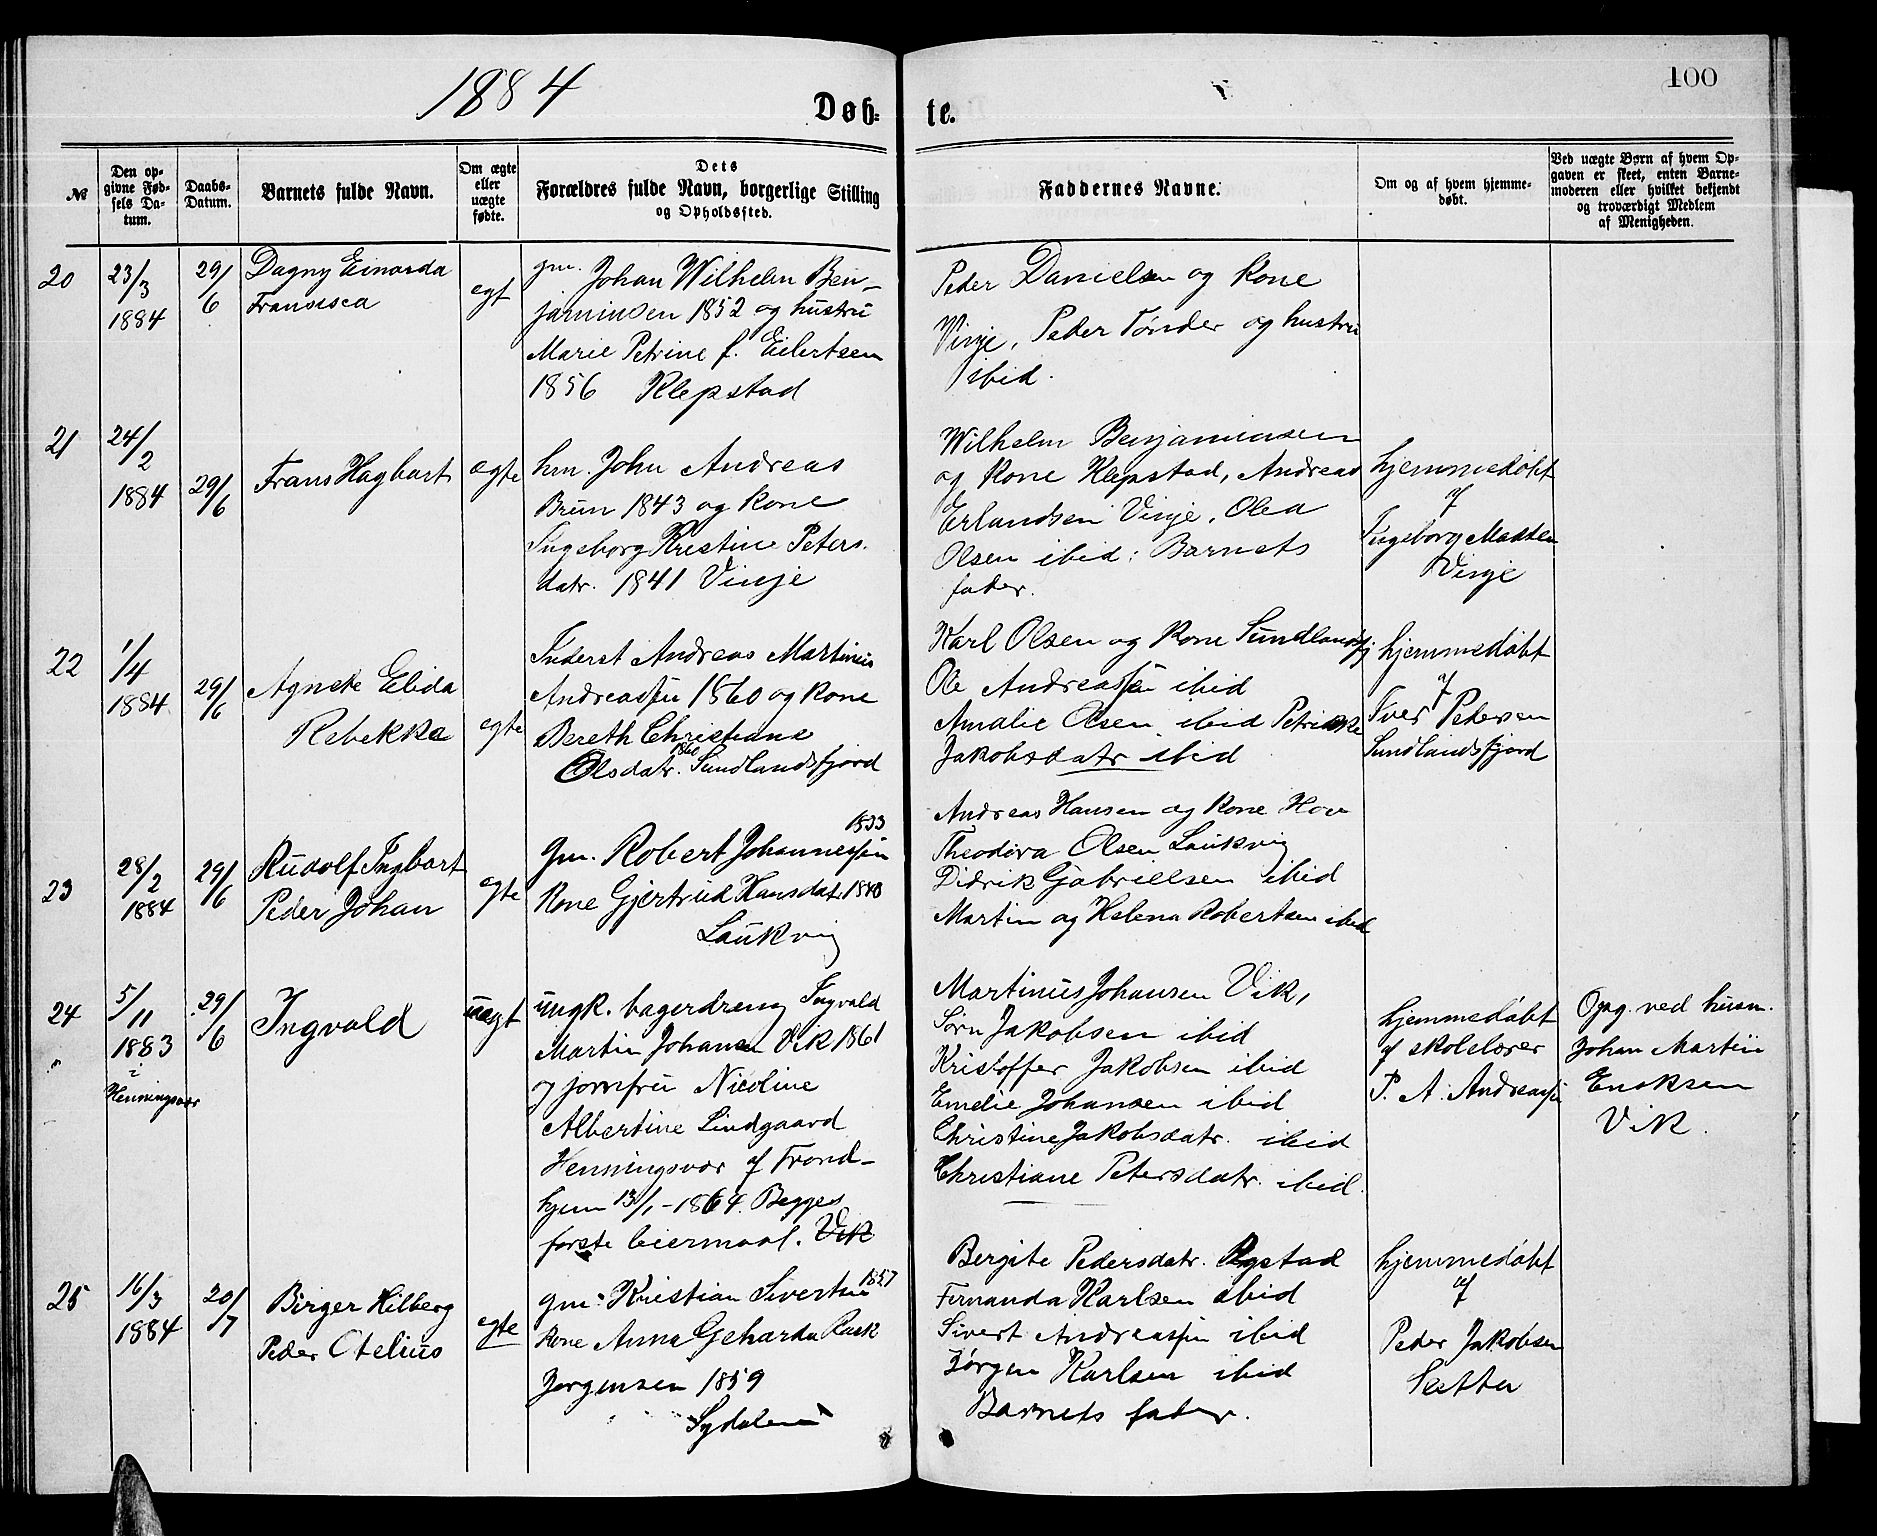 1884
100
Døb-
te.
№
Den op-
givne Fød-
sels Da-
tum.
Daabs-
Datum.
Barnets fulde Navn.
Om ægte
eller
uægte
fødte.
Dets
Forældres fulde Navn, borgerlige Stilling
og Opholdssted.
Faddernes Navne.
Om og af hvem hjemme-
døbt.
Ved uægte Børn af hvem Op-
gaven er skeet, enten Barne-
moderen eller hvilket bekjendt
og troværdigt Medlem
af Menigheden.
20
23/3
1884
29/6
Dagny Einarda
Fransisca
egt
gm. Johan Wilhelm Ben-
jaminsen 1852 og hustru
Marie Petrine f. Eilertsen
1856 Klepstad
Peder Danielsen og Kone
Vinje, Peder Tønder og hustru
ibid.
21
24/2
1884
29/6
Frans Hagbart
egte
hm. John Andreas
Brun 1843 og Kone
Ingeborg Kristine Peters.
datr. 1841 Vinje
Wilhelm Benjaminsen
og Kone Klepstad, Andreas
Erlandsen Vinje, Olea
Olsen ibid: Barnets
fader.
hjemmedøbt
af
Ingeborg Madsen
Vinje
22
1/4
1884
29/6
Agnete Elida
Rebekka
egte
Inderst Andreas Martinus
Andreassen 1860 og Kone
Bereth Christiane
Olsdatr. Sundlandsfjord
Karl Olsen og Kone Sundlandsfj
Ole Andreassen ibid
Amalie Olsen ibid Petrikke
Jakobsdatr ibid
hjemmedøbt
af
Iver Pedersen
Sundlandsfjord
23
28/2
1884
29/6
Rudolf Ingbart
Peder Johan
egte
1833
gm. Robert Johannessen
Kone Gjertrud Hansdatr 1840
Laukvig
Andreas Hansen og Kone Hov
Theodora Olsen Laukvig
Didrik Gabrielsen ibid
Martin og Helena Robertsen ibid
24
5/11
1883
i
Henningsvær
29/6
Ingvald
uegt
ungk. bagerdreng Ingvald
Martin Johansen Vik 1861
og jomfru Nicoline
Albertine Lindgaard
Henningsvær af Trond-
hjem 13/1-1864. Begges
første leiermaal. Vik
Martinus Johansen Vik,
Sørn Jakobsen ibid
Kristoffer Jakobsen ibid
Emelie Johansen ibid
Christine Jakobsdatr. ibid
Christiane Petersdatr. ibid.
hjemmedøbt
af skolelærer
P. A. Andreassen
Opg. ved husm.
Johan Martin
Enoksen
Vik.
25
16/3
1884
20/7
Birger Hilberg
Peder Otelius
egte
gm. Kristian Sivertsen 1857
Kone Anna Geharda Rask
Jørgensen 1859
Sydalen
Bergite Pedersdatr. Rystad
Fernanda Karlsen ibid
Sivert Andreassen ibid
Jørgen Karlsen ibid
Barnets fader.
hjemmedøbt
af
Peder Jakobsen